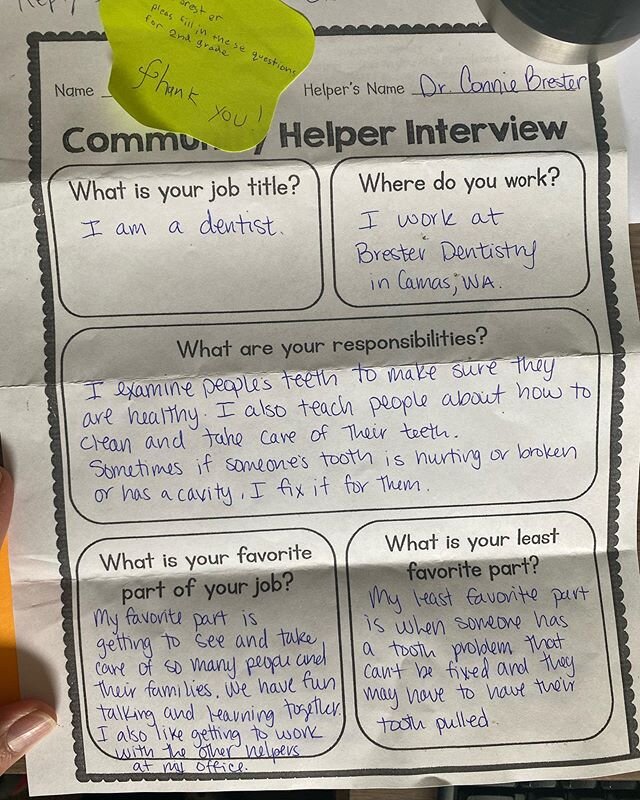 Reply
pleas fill in these questions
for 2nd grade
Thank you!
Name
Helper's Name Dr. Connie Brester
Community Helper Interview
What is your job title?
I am a dentist.
Where do you work?
I work at
Brester Dentistry
in Camas, WA.
What are your responsibilities?
I examine people's teeth to make sure they
are healthy. I also teach people about how to
clean and take care of their teeth.
Sometimes if someone's tooth is hurting or broken
or has a cavity, I fix it for them.
What is your favorite
part of your job?
My favorite part is
getting to see and take
care of so many people and
their families. We have fun
talking and learning together.
I also like getting to work
with the other helpers
at my office.
What is your least
favorite part?
My least favorite part
is when someone has
a tooth problem that
can't be fixed and they
may have to have their
tooth pulled.